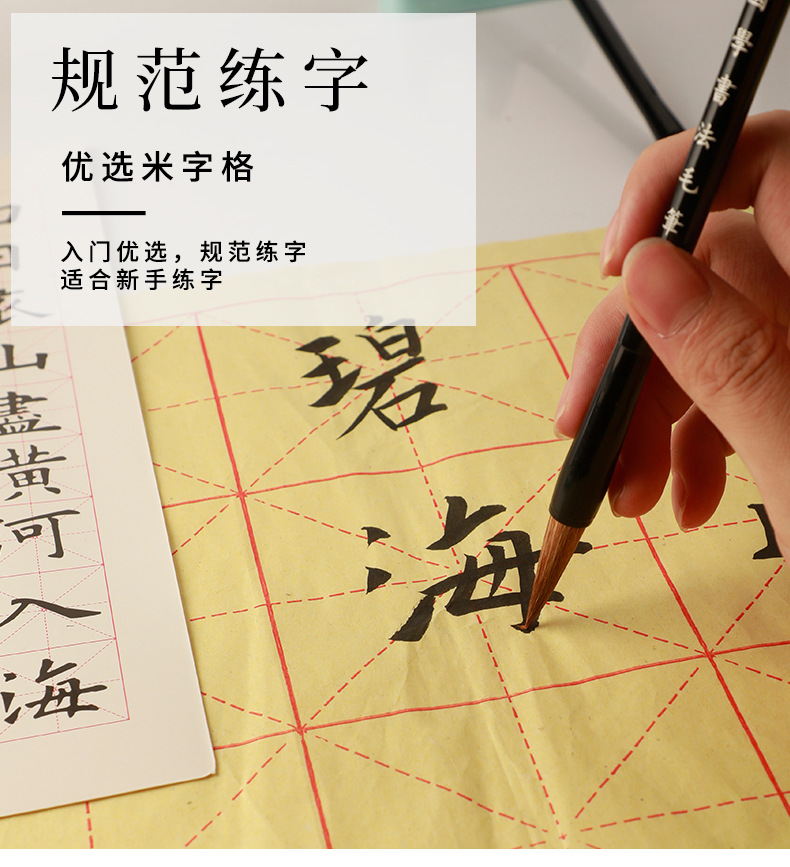 规范练字
优选米字格
入门优选，规范练字
适合新手练字
學書法毛筆
碧
海
山
盡
黄
河
入
海